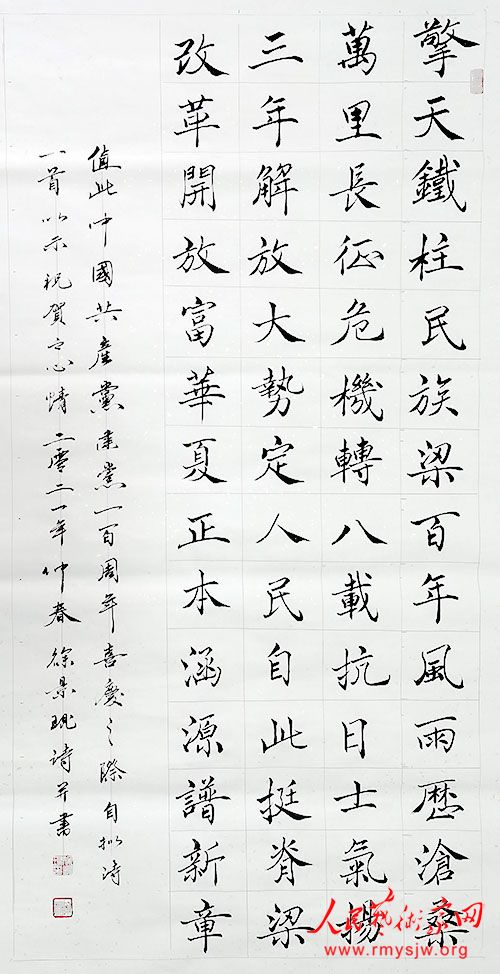 擎天鐵柱民族梁百年風雨歷滄桑
萬里長征危機轉八載抗日士氣揚
三年解放大勢定人民自此挺脊梁
改革開放富華夏正本涵源譜新章
值此中國共產黨建黨一百周年喜慶之際自擬詩
一首以示祝賀之心情二零二一年仲春徐景 詩并書
人民藝術家网
www.rmysjw.org